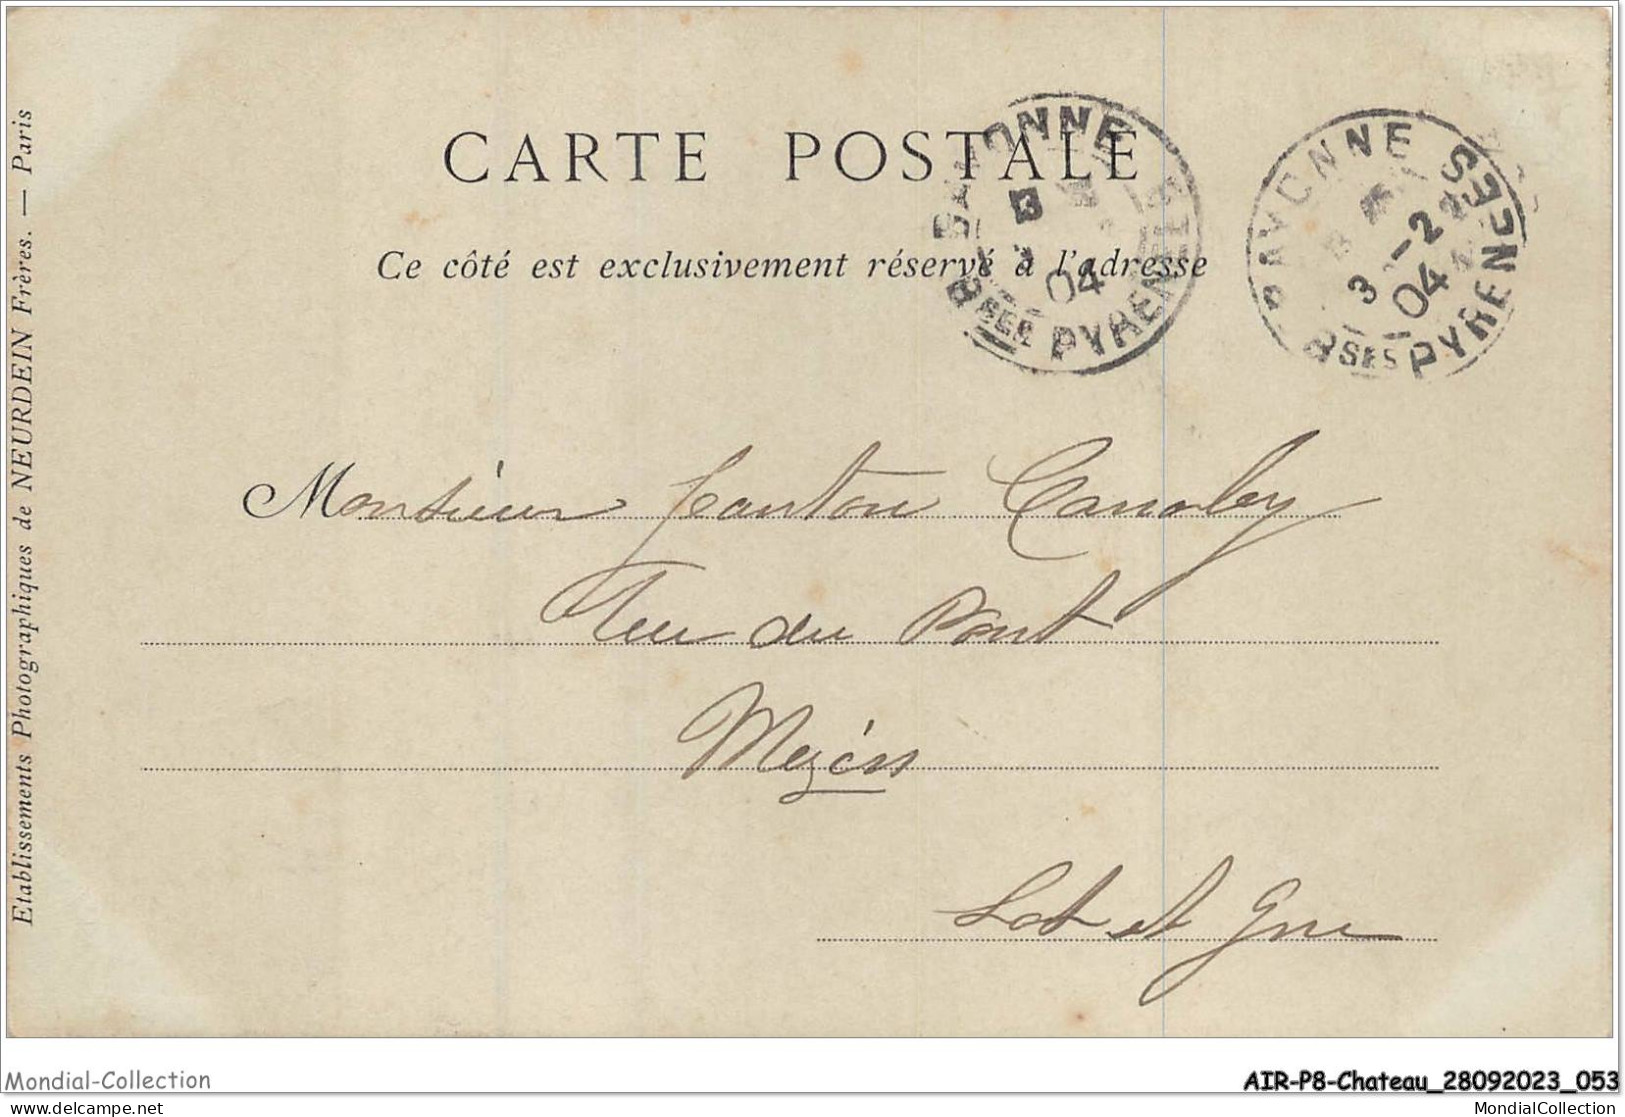 CARTE POSTALE
Ce côté est exclusivement réservé à l'adresse
BAYONNE
Bses PYRENEES
3
04
BAYONNE
Bses PYRENEES
3 -2
04
Etablissements Photographiques de NEURDEIN Frères. — Paris
Monsieur
rue du Pont
Mézin
Lot et Gne
Mondial-Collection
AIR-P8-Chateau_28092023_053
www.delcampe.net
MondialCollection